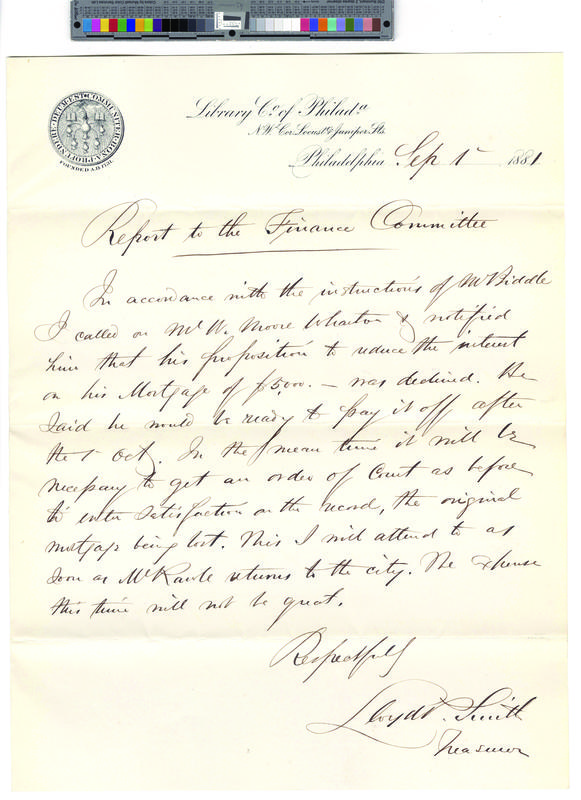 COMMUNITER BONA PROFUNDERE DEUM EST
FOUNDED A.D. 1731
Library Co. of Philada.
N.W. Cor. Locust & Juniper Sts.
Philadelphia Sep 1st 1881
Report to the Finance Committee
In accordance with the instructions of Mr Biddle
I called on Mr W. Moore Wharton & notified
him that his proposition to reduce the interest
on his Mortgage of $5,000. – was declined. He
said he would be ready to pay it off after
the 1 Oct. In the mean time it will be
necessary to get an order of Court as before
to enter satisfaction on the record, the original
mortgage being lost. This I will attend to as
soon as Mr Rawle returns to the city. The expense
this time will not be great.
Respectfully
Lloyd P. Smith
Treasurer